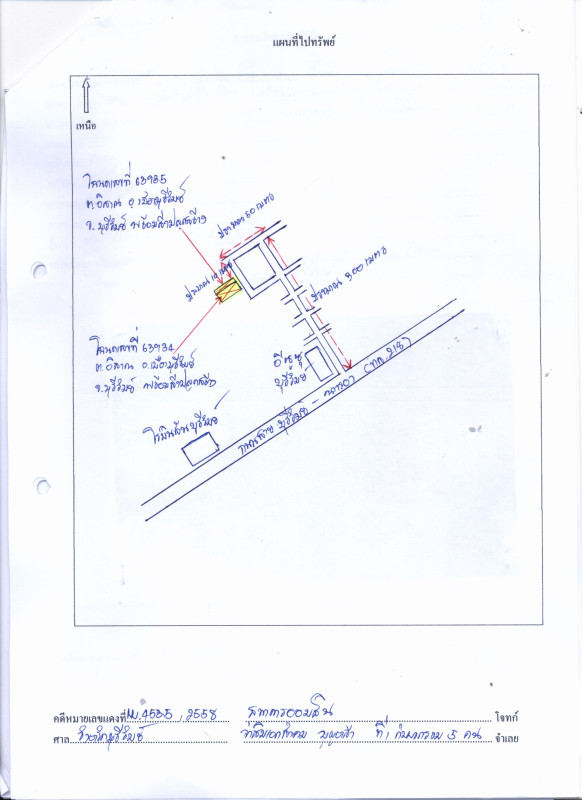 แผนที่ไปทรัพย์
เหนือ
โฉนดเลขที่ 63935
ต.อิสาณ อ.เมืองบุรีรัมย์
จ.บุรีรัมย์ พร้อมสิ่งปลูกสร้าง
ประมาณ 50 เมตร
ประมาณ
ประมาณ 300 เมตร
โฉนดเลขที่ 63934
ต.อิสาณ อ.เมืองบุรีรัมย์
จ.บุรีรัมย์ พร้อมสิ่งปลูกสร้าง
อีซูซุ
บุรีรัมย์
โรมันบุรีรัมย์
ถนนสาย บุรีรัมย์ - นางรอง (ทล.218)
คดีหมายเลขแดงที่ ผบ.4535/2558 ธนาคารออมสิน โจทก์
ศาล จังหวัดบุรีรัมย์ ที่ 1 กับพวกรวม 5 คน จำเลย